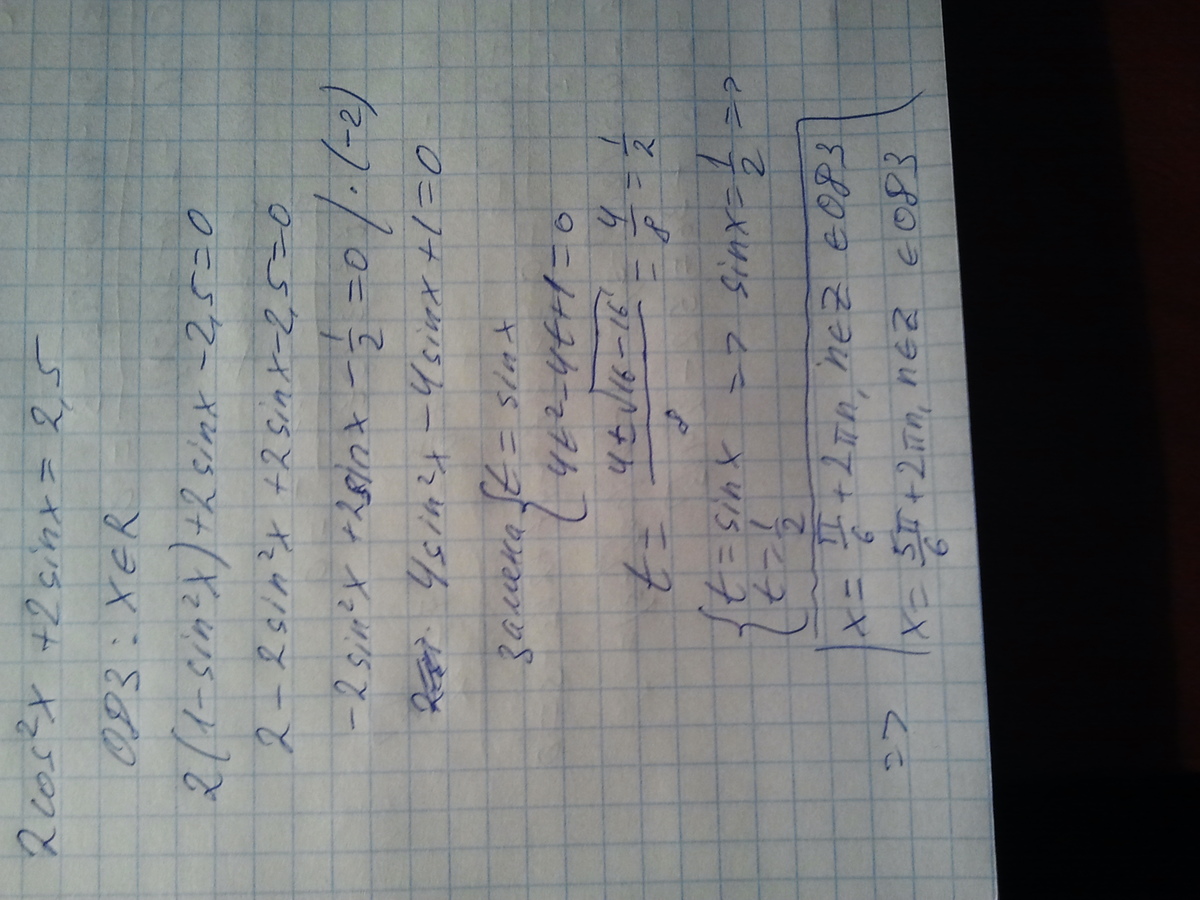 2cos²x + 2sinx = 2,5
ОДЗ: x∈R
2(1-sin²x)+2sinx-2,5=0
2-2sin²x+2sinx-2,5=0
-2sin²x+2sinx-1/2=0 /·(-2)
4sin²x-4sinx+1=0
Замена { t=sinx
4t²-4t+1=0
t= (4±√16-16)/8 = 4/8 = 1/2
{ t=sinx => sinx=1/2 =>
t=1/2
=> [ x=π/6+2πn, n∈Z ∈ОДЗ
x=5π/6+2πn, n∈Z ∈ОДЗ